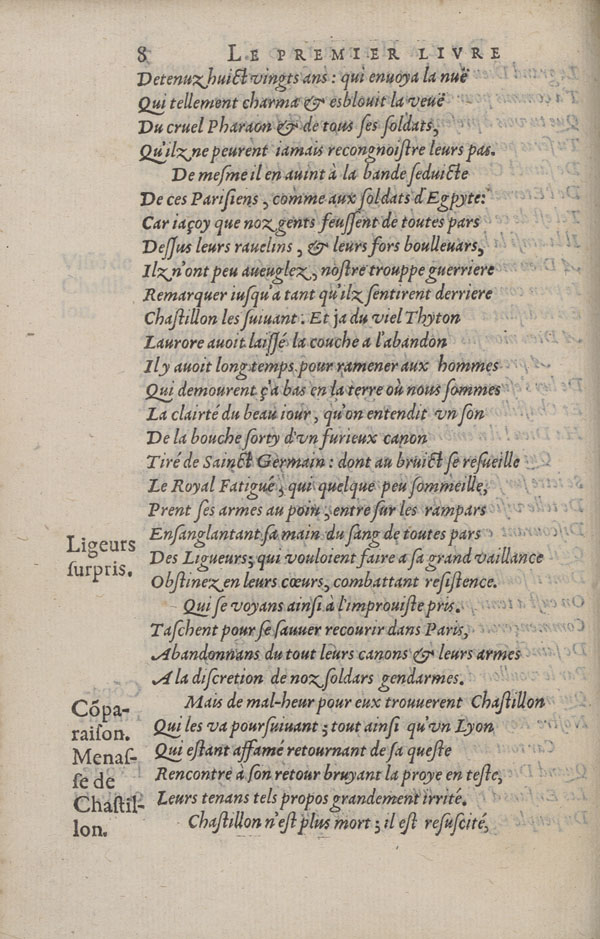 8 LE PREMIER LIVRE
Detenuz huict vingts ans : qui enuoya la nuë
Qui tellement charma & esblouit la veuë
Du cruel Pharaon & de tous ſes ſoldats,
Qu'ilz ne peurent iamais recongnoiſtre leurs pas.
De meſme il en auint à la bande ſeduicte
De ces Pariſiens, comme aux ſoldats d'Egpyte:
Car iaçoy que noz gents feuſſent de toutes pars
Deſſus leurs rauelins, & leurs fors boulleuars,
Ilz n'ont peu aueuglez, noſtre trouppe guerriere
Remarquer iuſqu'a tant qu'ilz ſentirent derriere
Chaſtillon les ſuiuant. Et ja du viel Thyton
Laurore auoit laiſſé la couche a l'abandon
Il y auoit long temps pour ramener aux hommes
Qui demourent ç'a bas en la terre où nous ſommes
La clairté du beau iour, qu'on entendit vn ſon
De la bouche ſorty d'vn furieux canon
Tiré de Sainct Germain : dont au bruict ſe reſueille
Le Royal Fatigué, qui quelque peu ſommeille,
Prent ſes armes au poin, entre ſur les rampars
Enſanglantant ſa main du ſang de toutes pars
Ligeurs
ſurpris.
Des Ligueurs; qui vouloient faire a ſa grand vaillance
Obſtinez en leurs cœurs, combattant reſiſtence.
Qui ſe voyans ainſi à l'improuiſte pris.
Taſchent pour ſe ſauuer recourir dans Paris,
Abandonnans du tout leurs canons & leurs armes
A la diſcretion de noz ſoldars gendarmes.
Mais de mal-heur pour eux trouuerent Chaſtillon
Cõpa-
raiſon.
Menaſ-
ſe de
Chaſtil-
lon.
Qui les va pourſuiuant; tout ainſi qu'vn Lyon
Qui eſtant affamé retournant de ſa queſte
Rencontre à ſon retour bruyant la proye en teſte,
Leurs tenans tels propos grandement irrité.
Chaſtillon n'eſt plus mort; il eſt reſuſcité,